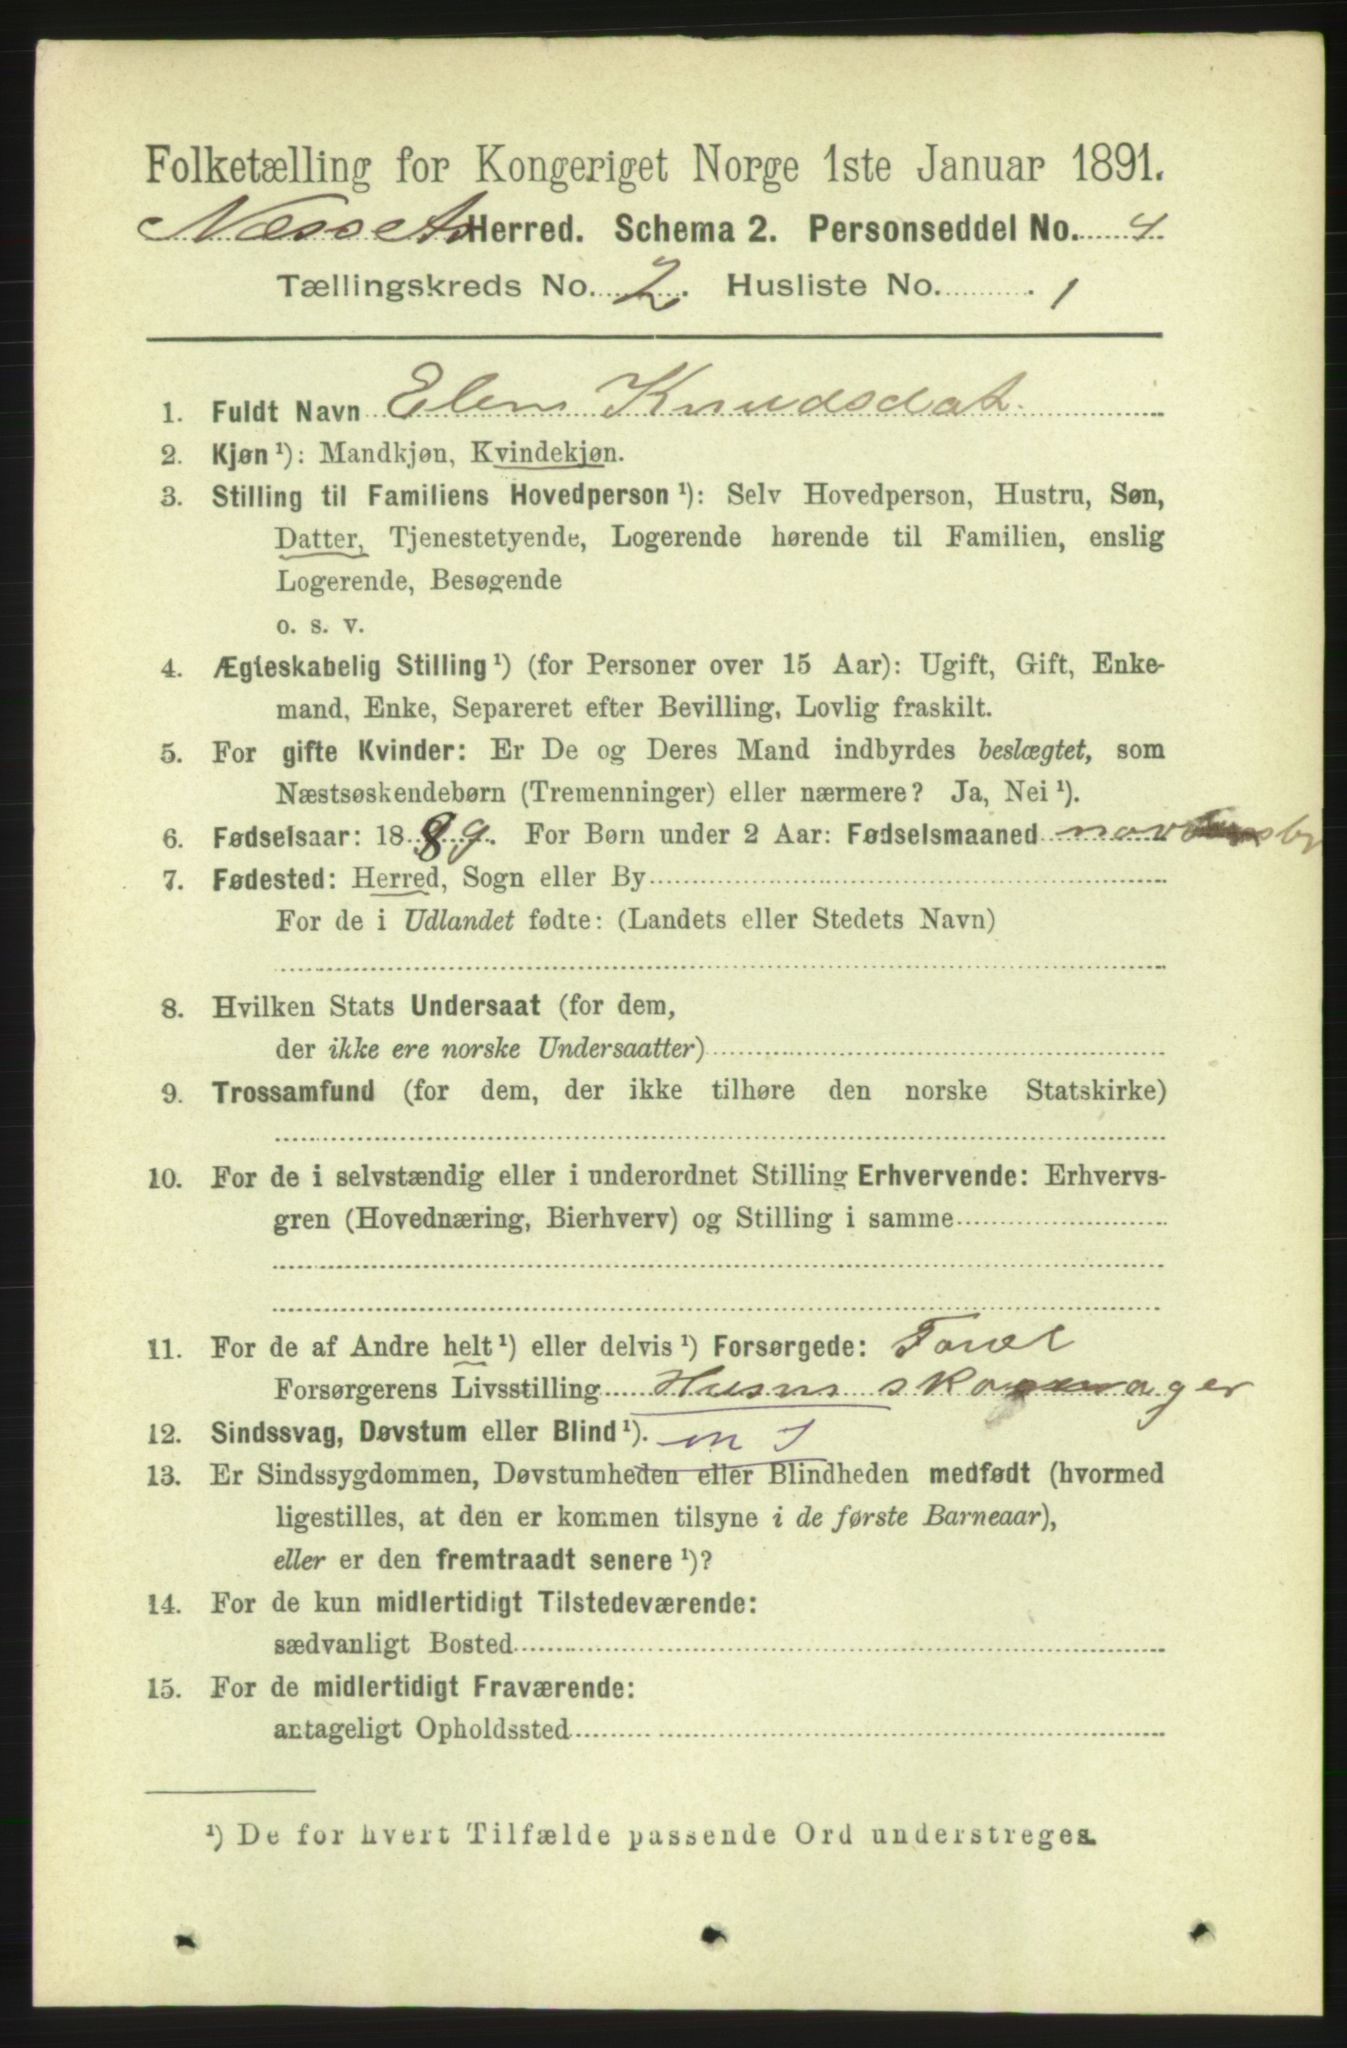 Folketælling for Kongeriget Norge 1ste Januar 1891.
Næsset Herred. Schema 2. Personseddel No. 4
Tællingskreds No. 2. Husliste No. 1
1. Fuldt Navn Elen Knudsdat.
2. Kjøn ¹): Mandkjøn, Kvindekjøn.
3. Stilling til Familiens Hovedperson ¹): Selv Hovedperson, Hustru, Søn,
Datter, Tjenestetyende, Logerende hørende til Familien, enslig
Logerende, Besøgende
o. s. v.
4. Ægteskabelig Stilling ¹) (for Personer over 15 Aar): Ugift, Gift, Enke-
mand, Enke, Separeret efter Bevilling, Lovlig fraskilt.
5. For gifte Kvinder: Er De og Deres Mand indbyrdes beslægtet, som
Næstsøskendebørn (Tremenninger) eller nærmere? Ja, Nei ¹).
6. Fødselsaar: 1889. For Børn under 2 Aar: Fødselsmaaned
7. Fødested: Herred, Sogn eller By
For de i Udlandet fødte: (Landets eller Stedets Navn)
8. Hvilken Stats Undersaat (for dem,
der ikke ere norske Undersaatter)
9. Trossamfund (for dem, der ikke tilhøre den norske Statskirke)
10. For de i selvstændig eller i underordnet Stilling Erhvervende: Erhvervs-
gren (Hovednæring, Bierhverv) og Stilling i samme
11. For de af Andre helt ¹) eller delvis ¹) Forsørgede:
Forsørgerens Livsstilling Husm
12. Sindssvag, Døvstum eller Blind ¹). m J
13. Er Sindssygdommen, Døvstumheden eller Blindheden medfødt (hvormed
ligestilles, at den er kommen tilsyne i de første Barneaar),
eller er den fremtraadt senere ¹)?
14. For de kun midlertidigt Tilstedeværende:
sædvanligt Bosted
15. For de midlertidigt Fraværende:
antageligt Opholdssted
¹) De for hvert Tilfælde passende Ord understreges.